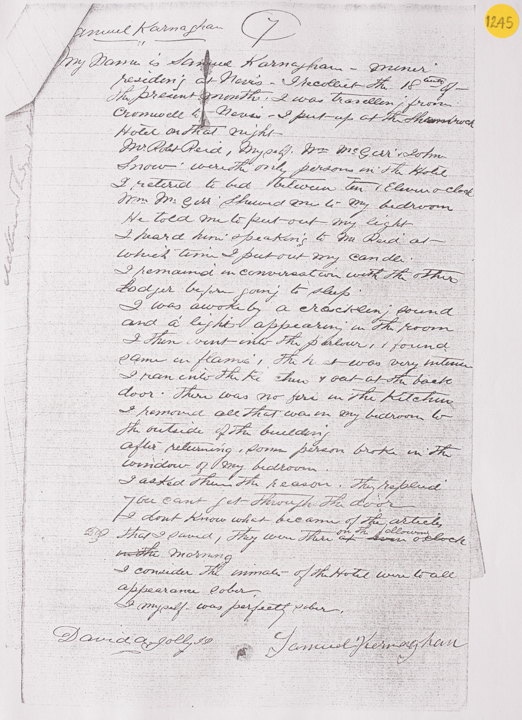 1245
Samuel Karnaghan
7
My Name is Samuel Karnaghan - miner
residing at Nevis - I recollect the 18 of
the present month. I was travelling from
Cromwell to Nevis - I put up at the Shamrock
Hotel on that night
Mr Robt Reid, Myself. Wm McGirr John
Snow were the only persons in the Hotel
I retired to bed between ten & Eleven o clock
Wm McGirr Shewed me to my bedroom
He told me to put out my light
I heard him speaking to Mr Reid at
which time I put out my candle.
I remained in conversation with the other
Lodger before going to sleep.
I was awoke by a crackling sound
and a light appearing in the room
I then went into the parlour, & found
same in flame, the heat was very intense
I ran into the Kitchen & out at the back
door. there was no fire in the Kitchen
I removed all that was in my bedroom to
the outside of the building
after returning, some person broke in the
window of my bedroom.
I asked them the reason. they replied
you cant get through the door
I dont know what became of the articles
that I saved, they were there on the following
in the morning
I consider the inmates of the Hotel were to all
appearance sober.
I myself was perfectly sober.
David A. Jolly Samuel Kernaghan